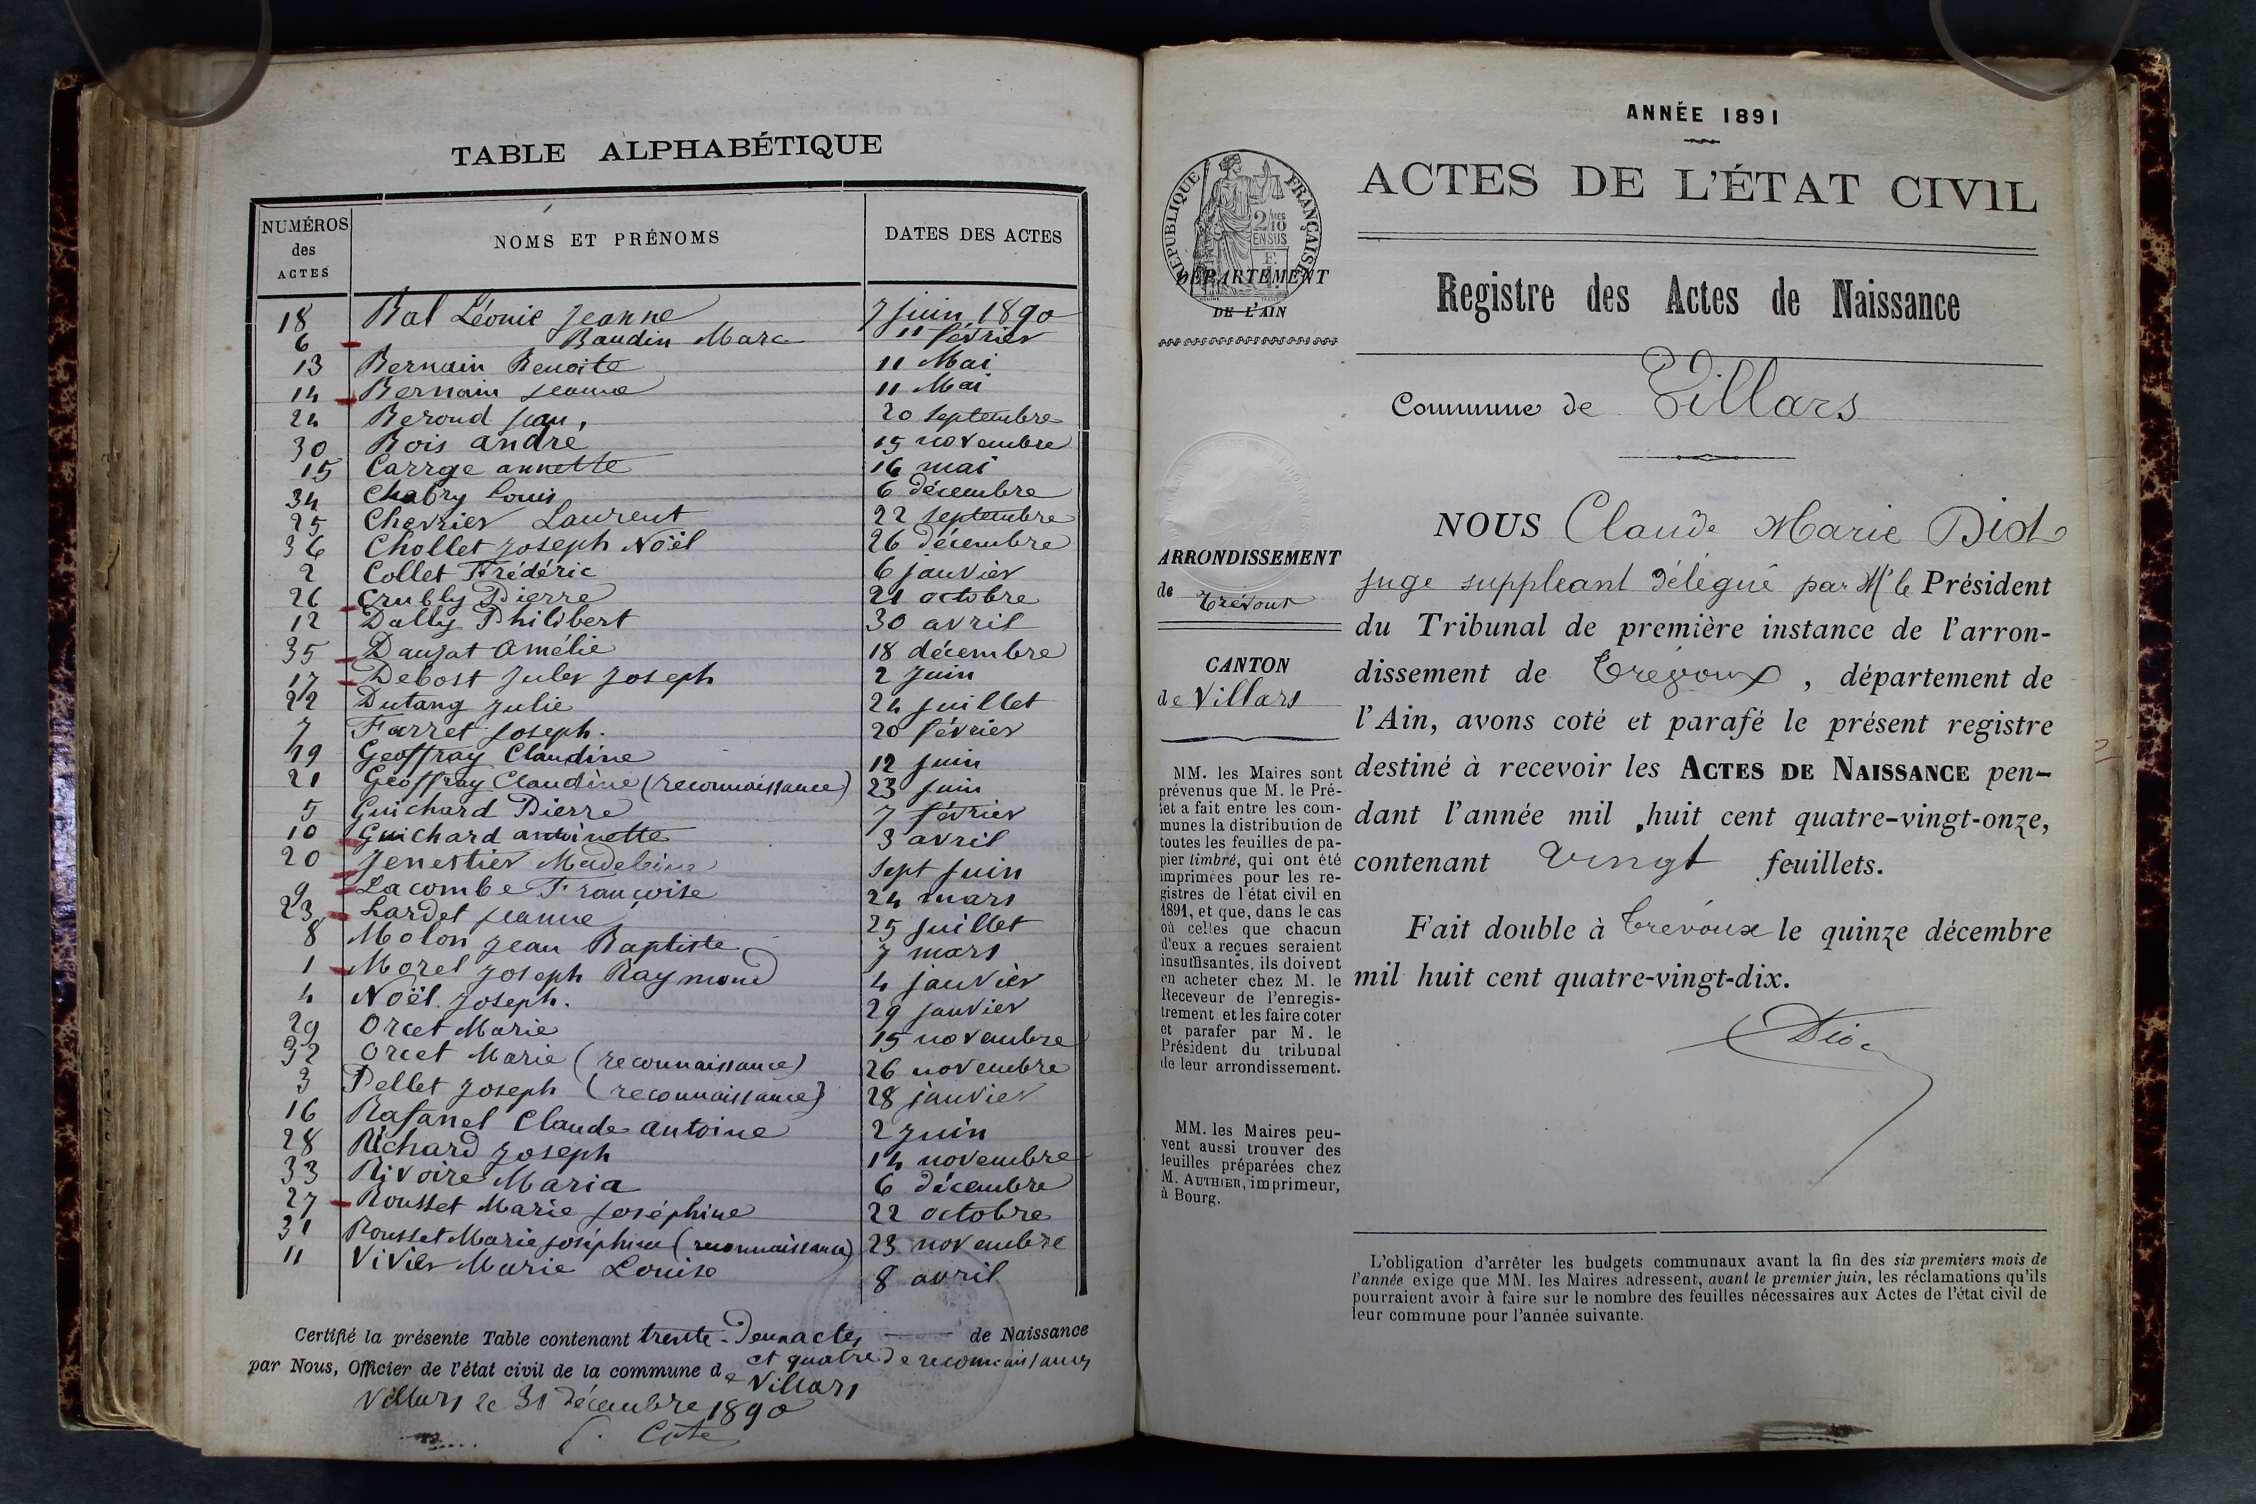 TABLE ALPHABÉTIQUE
NUMÉROS des ACTES
NOMS ET PRÉNOMS
DATES DES ACTES
18 Bal Léonie Jeanne 7 juin 1890
6 Baudin Marc 11 février
13 Bernain Benoite 11 Mai
14 Bernain Jeanne 11 Mai
24 Beroud Jean, 20 septembre
30 Bois andré 15 novembre
15 Carrge annette 16 mai
34 Chabry Louis 6 décembre
25 Chevrier Laurent 22 septembre
36 Chollet Joseph Noël 26 décembre
2 Collet Frédéric 6 janvier
26 Crubly Pierre 21 octobre
12 Dally Philibert 30 avril
35 Daujat Amélie 18 décembre
17 Debost Jules Joseph 2 Juin
22 Dutang Julie 24 juillet
7 Farret Joseph. 20 février
19 Geoffray Claudine 12 juin
21 Geoffray Claudine (reconnaissance) 23 juin
5 Guichard Pierre 7 février
10 Guichard antoinette 3 avril
20 Jenestier Madeleine sept juin
9 Lacombe Françoise 24 mars
23 Lardet Jeanne 25 juillet
8 Molon Jean Baptiste 7 mars
1 Morel Joseph Raymond 4 janvier
4 Noël Joseph. 29 janvier
29 Orcet Marie 15 novembre
32 Orcet Marie (reconnaissance) 26 novembre
3 Pellet Joseph (reconnaissance) 28 janvier
16 Rafanel Claude antoine 2 Juin
28 Richard Joseph 14 novembre
33 Rivoire Maria 6 décembre
27 Rousset Marie Joséphine 22 octobre
31 Rousset Marie Joséphine (reconnaissance) 23 novembre
11 Vivier Marie Louise 8 avril
Certifié la présente Table contenant trente-deux actes de Naissance
et quatre de reconnaissances
par Nous, Officier de l'état civil de la commune de Villars
Villars le 31 décembre 1890
ANNÉE 1891
ACTES DE L'ÉTAT CIVIL
RÉPUBLIQUE FRANÇAISE
2/10 EN SUS
DÉPARTEMENT
DE L'AIN
Registre des Actes de Naissance
Commune de Villars
ARRONDISSEMENT
de Trévoux
CANTON
de Villars
MM. les Maires sont
prévenus que M. le Pré-
fet a fait entre les com-
munes la distribution de
toutes les feuilles de pa-
pier timbré, qui ont été
imprimées pour les re-
gistres de l'état civil en
1891, et que, dans le cas
où celles que chacun
d'eux a reçues seraient
insuffisantes, ils doivent
en acheter chez M. le
Receveur de l'enregis-
trement et les faire coter
et parafer par M. le
Président du tribunal
de leur arrondissement.
MM. les Maires peu-
vent aussi trouver des
feuilles préparées chez
M. AUTHIER, imprimeur,
à Bourg.
NOUS Claude Marie Diot
juge suppleant délégué par Mr le Président
du Tribunal de première instance de l'arron-
dissement de Trévoux, département de
l'Ain, avons coté et parafé le présent registre
destiné à recevoir les ACTES DE NAISSANCE pen-
dant l'année mil huit cent quatre-vingt-onze,
contenant vingt feuillets.
Fait double à Trévoux le quinze décembre
mil huit cent quatre-vingt-dix.
Diot
L'obligation d'arrêter les budgets communaux avant la fin des six premiers mois de
l'année exige que MM. les Maires adressent, avant le premier juin, les réclamations qu'ils
pourraient avoir à faire sur le nombre des feuilles nécessaires aux Actes de l'état civil de
leur commune pour l'année suivante.